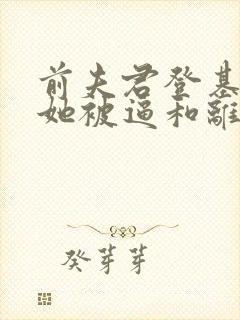 前夫君登基
她被逼和離
癸芽芽